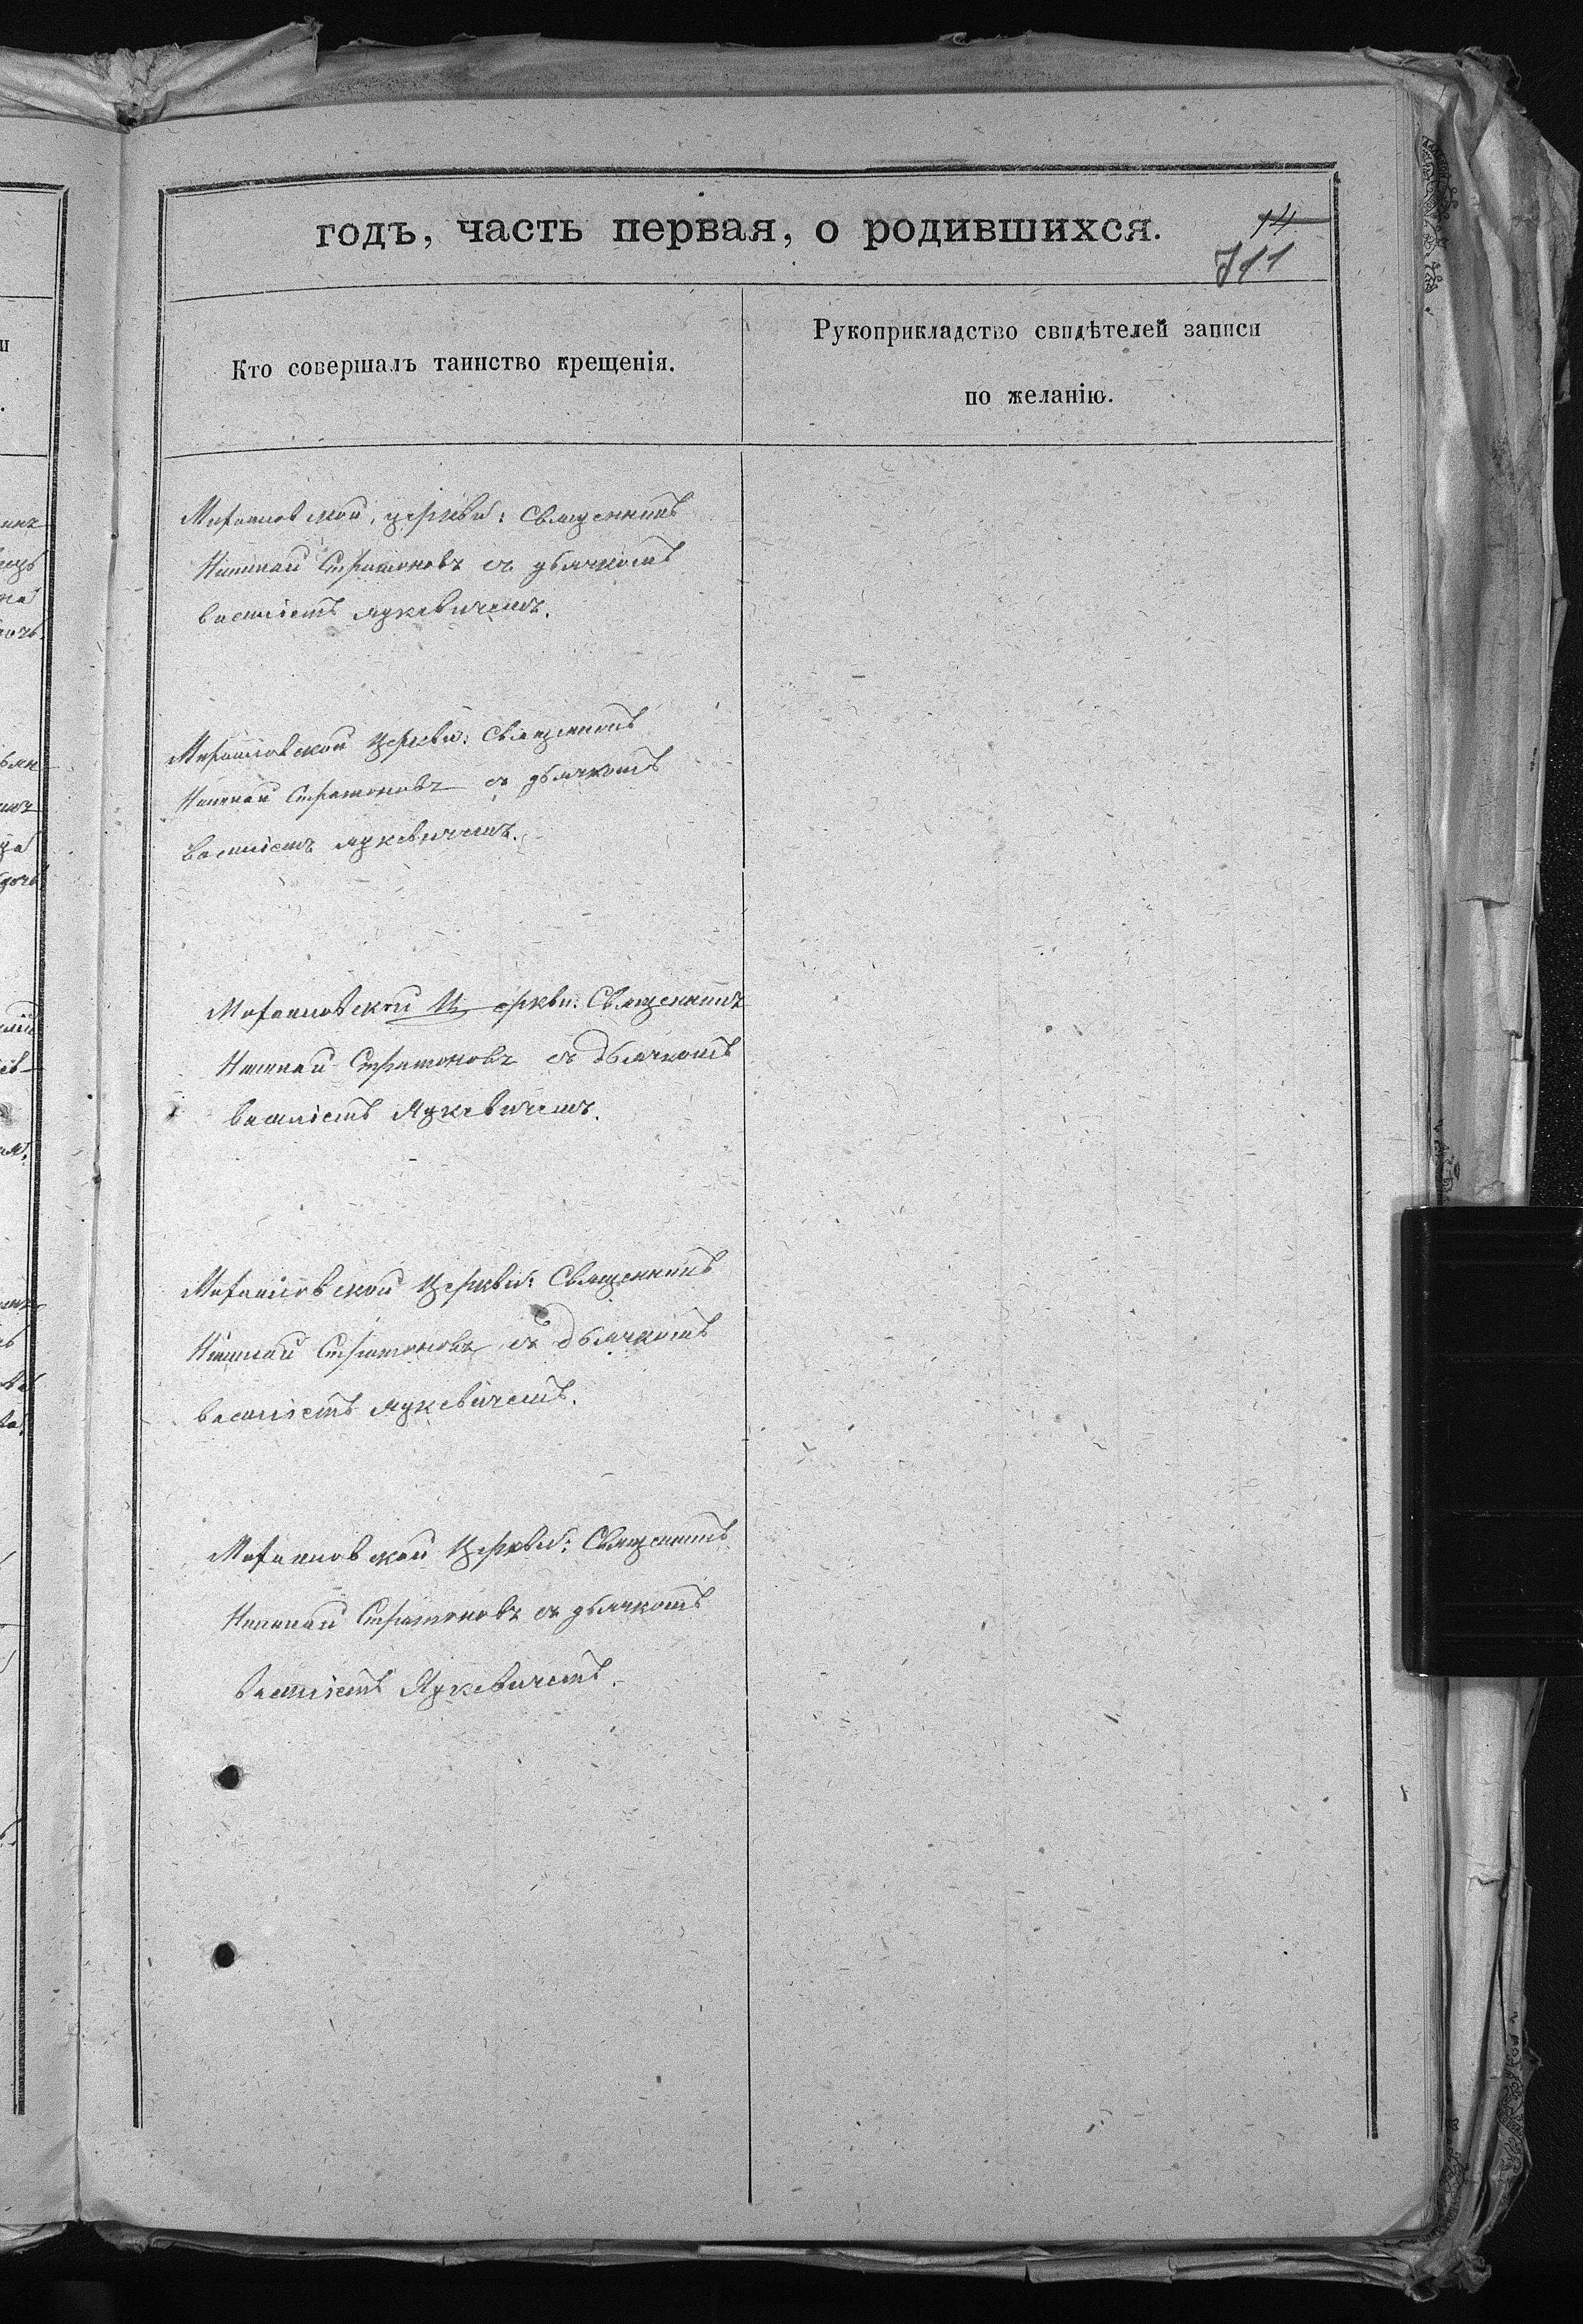 годъ, часть первая, о родившихся.
14
711
Кто совершалъ таинство крещенія.
Рукоприкладство свидѣтелей записи
по желанію.
церкви: Священникъ
Николай Стратоновъ съ дьячкомъ
Василіемъ Яцкевичемъ.
Церкви: Священникъ
Николай Стратоновъ съ дьячкомъ
Василіемъ Яцкевичемъ.
Церкви: Священникъ
Николай Стратоновъ съ Дьячкомъ
Василіемъ Яцкевичемъ.
Церкви: Священникъ
Николай Стратоновъ съ Дьячкомъ
Василіемъ Яцкевичемъ.
Церкви: Священникъ
Николай Стратоновъ съ дьячкомъ
Василіемъ Яцкевичемъ.